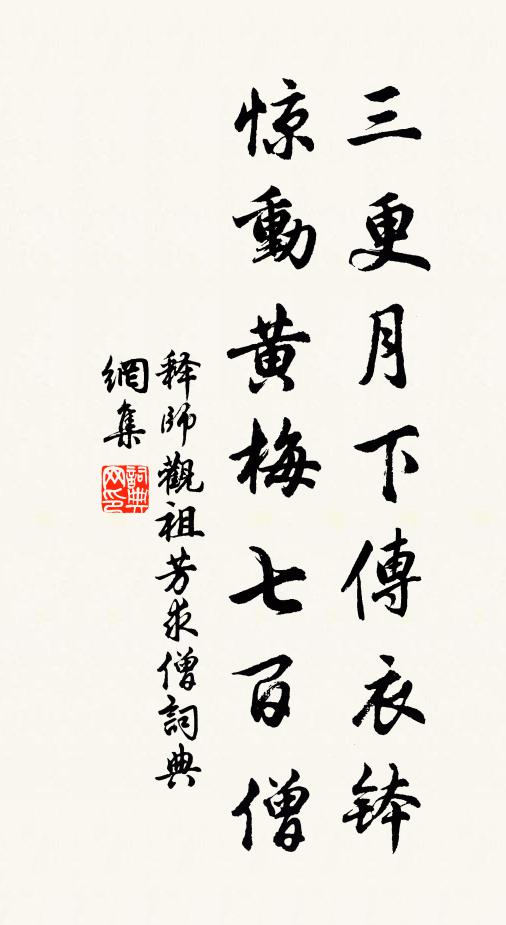 三更月下傳衣鉢
惊動黄梅七百僧
釋師觀祖芳求僧詞典
網集
詞典網印